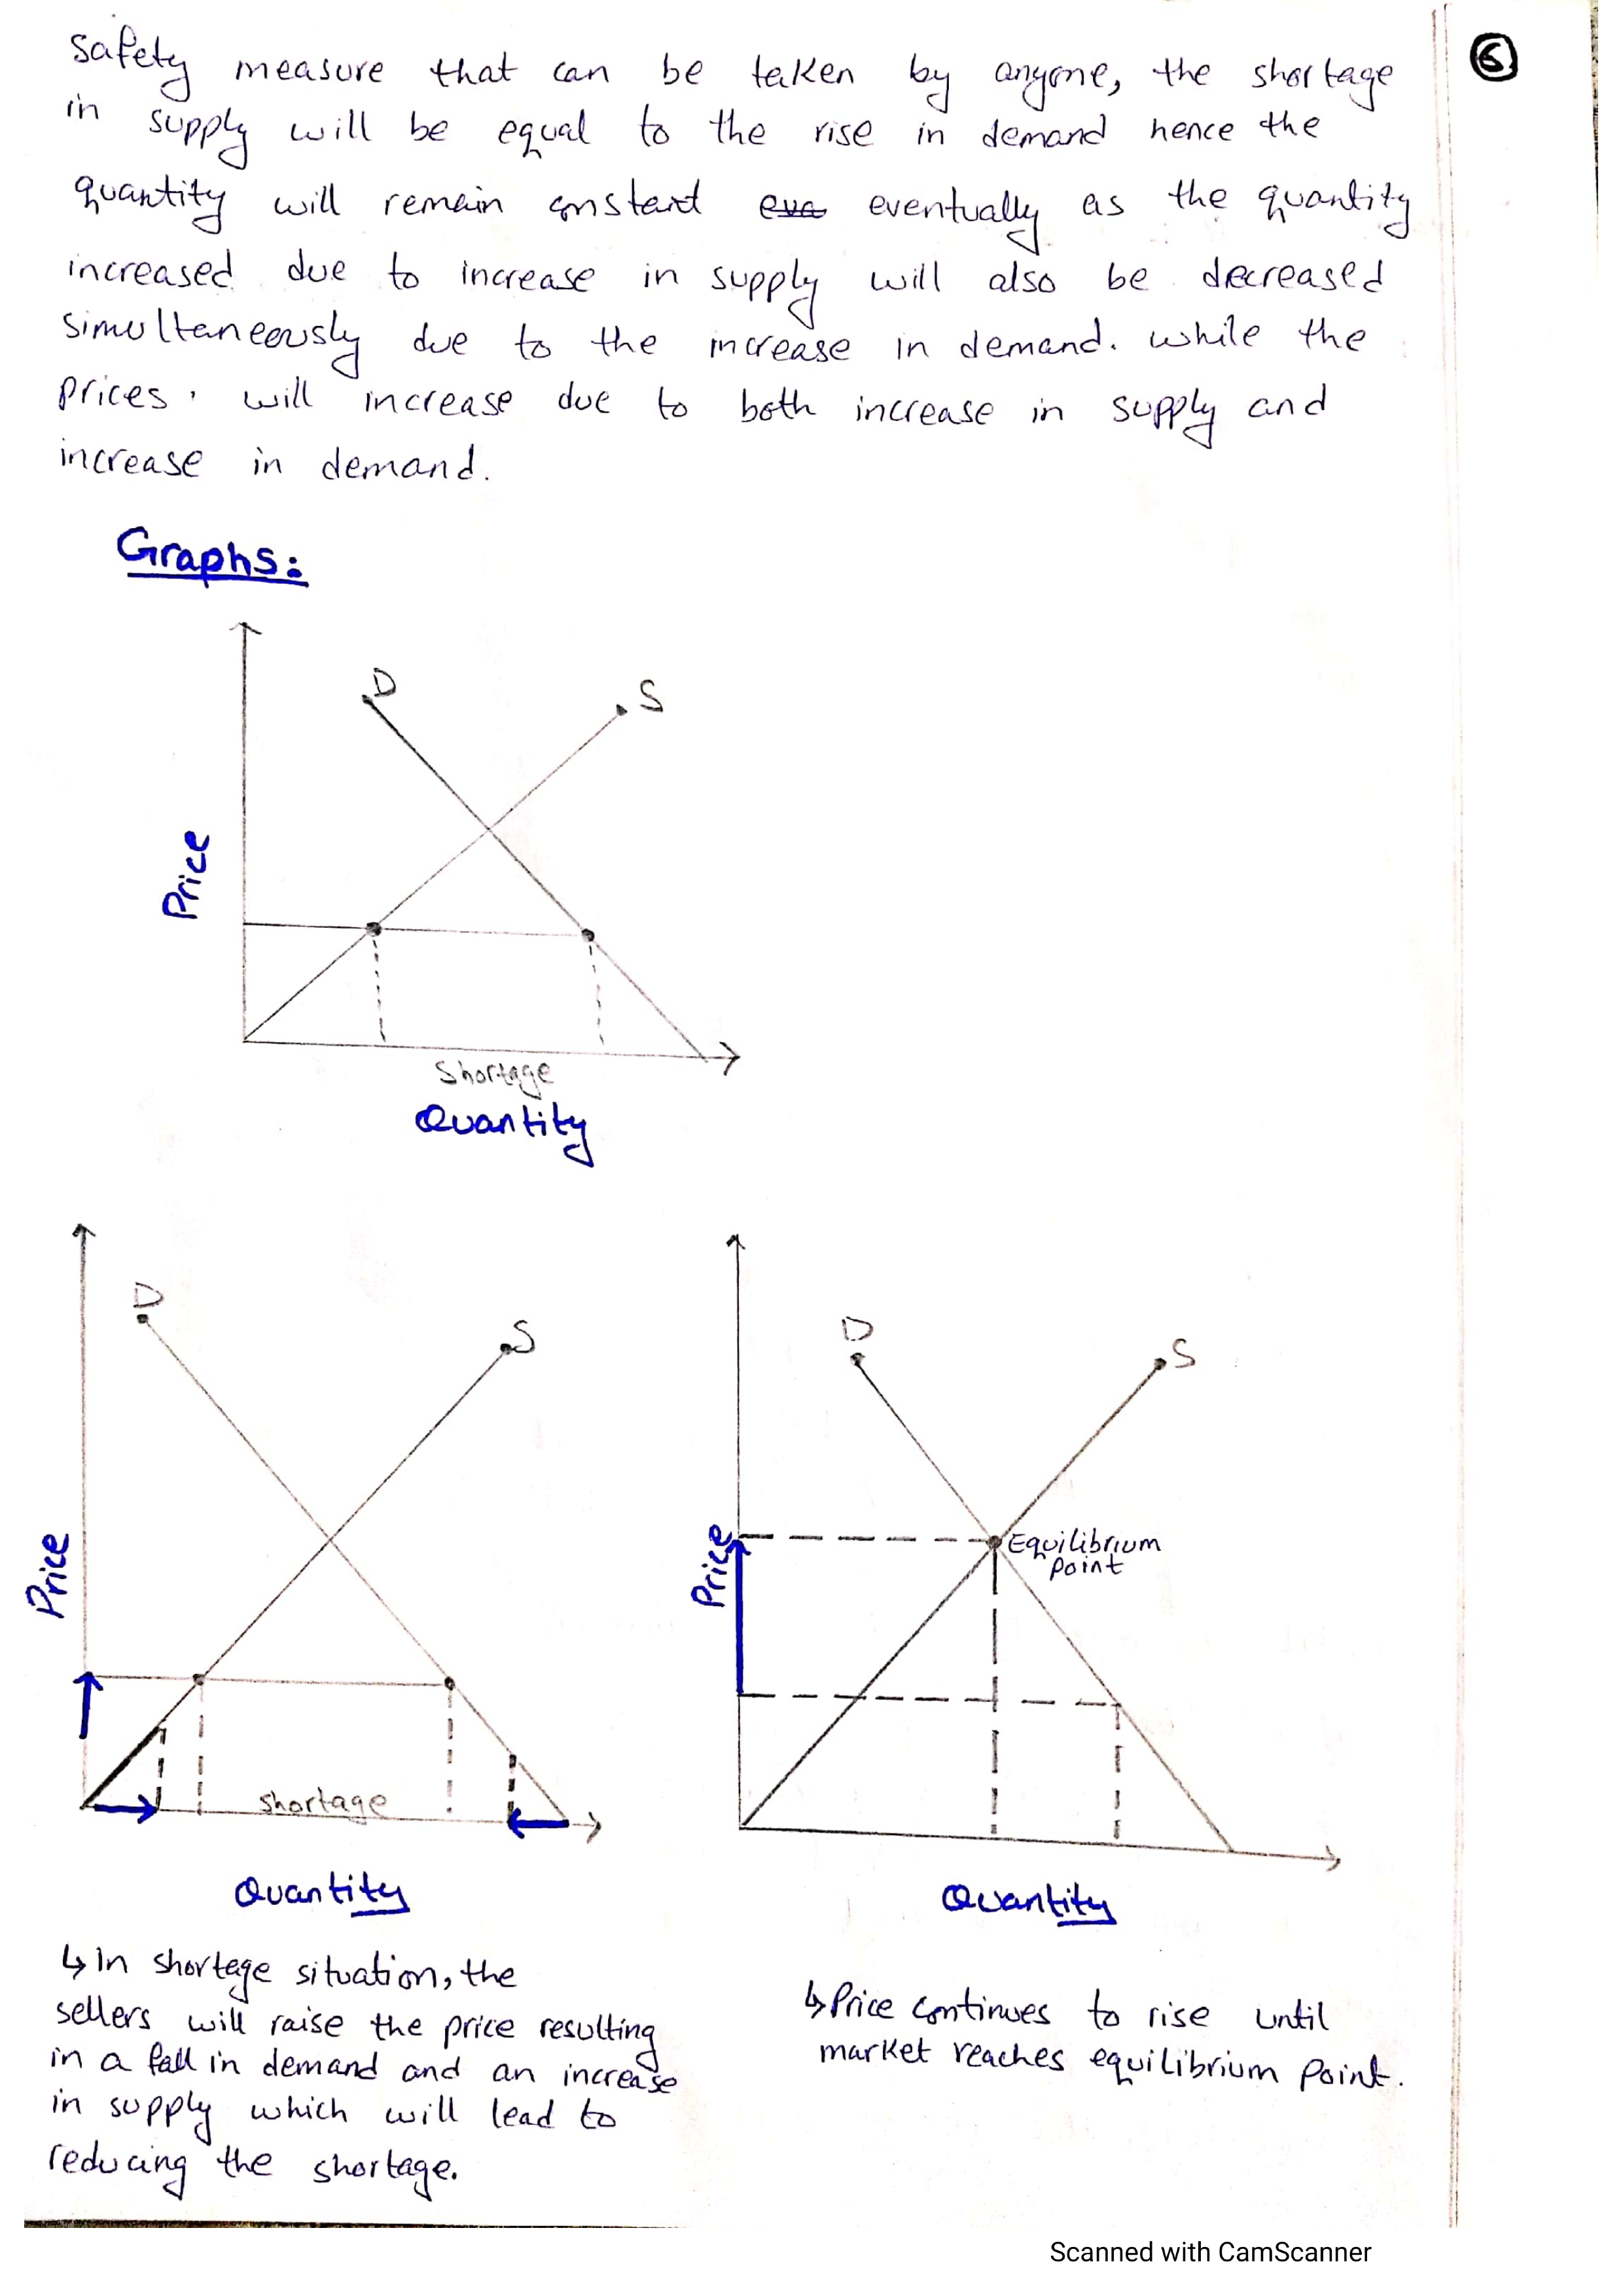 6
safety measure that can be taken by anyone, the shortage
in supply will be equal to the rise in demand hence the
quantity will remain constant eva eventually as the quantity
increased due to increase in supply will also be decreased
simultaneously due to the increase in demand. while the
prices will increase due to both increase in supply and
increase in demand.
Graphs:
D
S
Price
Shortage
Quantity
D
S
Price
shortage
Quantity
D
S
Price
Equilibrium
point
Quantity
↳ In shortage situation, the
sellers will raise the price resulting
in a fall in demand and an increase
in supply which will lead to
reducing the shortage.
↳ Price continues to rise until
market reaches equilibrium point.
Scanned with CamScanner